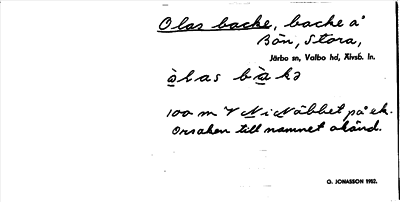 Olas backe, backe å
Bön, Stora,
Järbo sn, Valbo hd, Älvsb. ln.
àlas bàkə
100 m V N i Näbbet på ek.
Orsaken till namnet okänd.
O. JONASSON 1982.